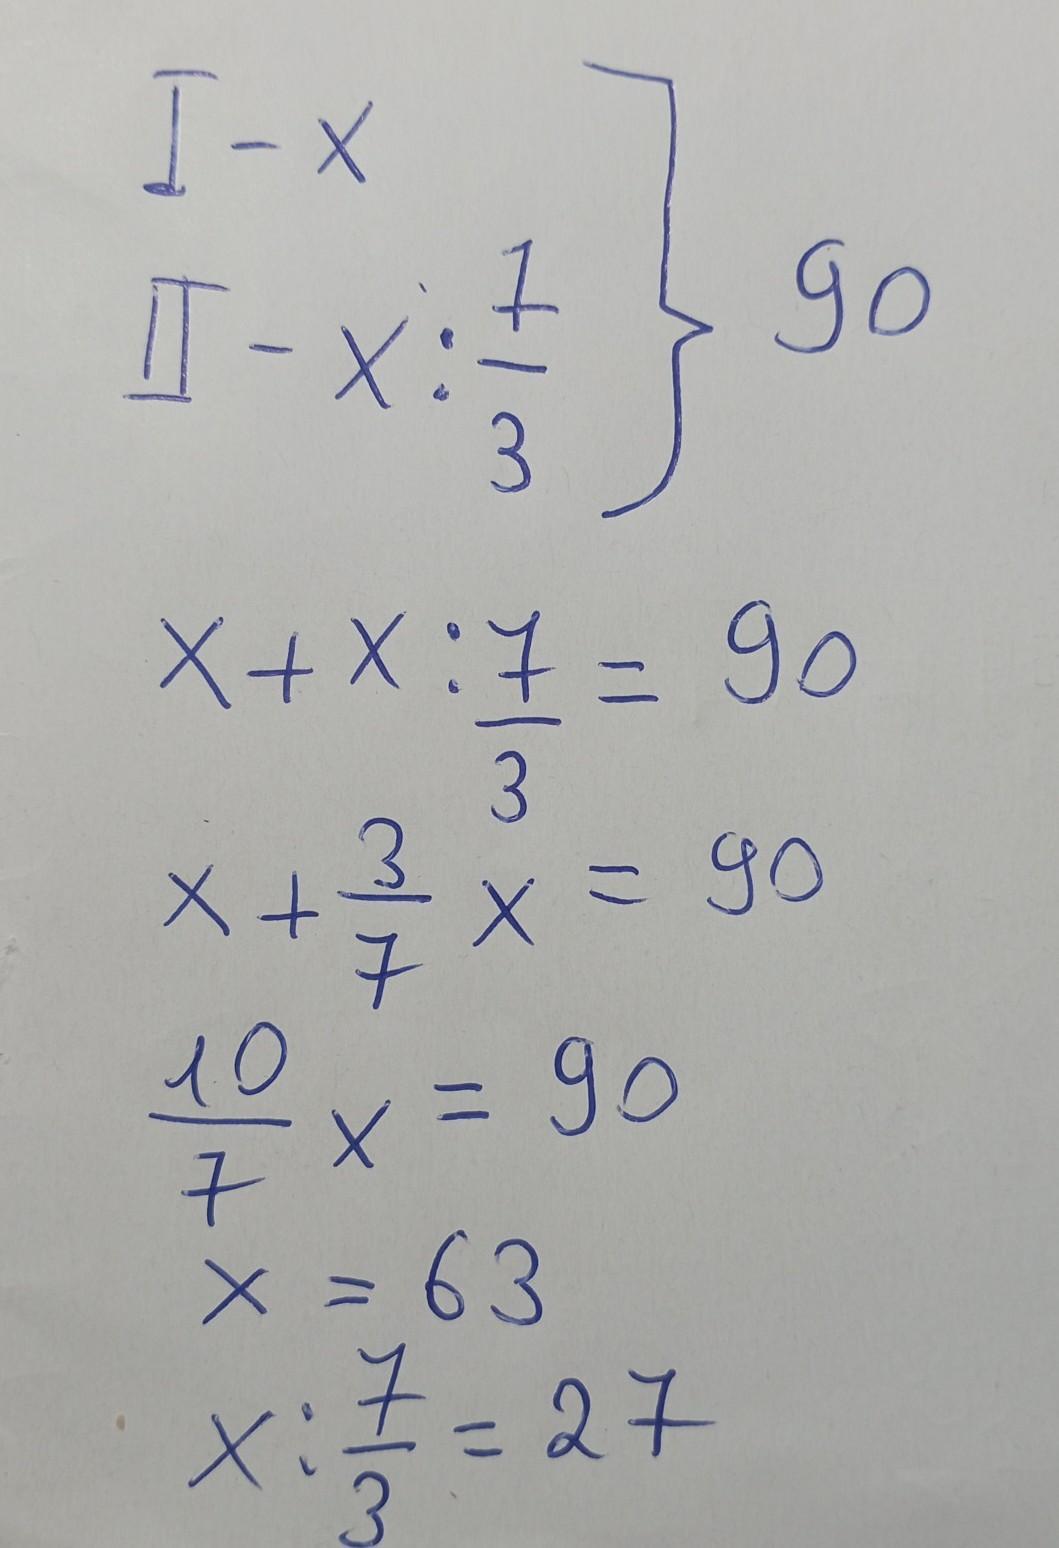 I - x
II - x : 7/3 } 90
x + x : 7/3 = 90
x + 3/7 x = 90
10/7 x = 90
x = 63
x : 7/3 = 27